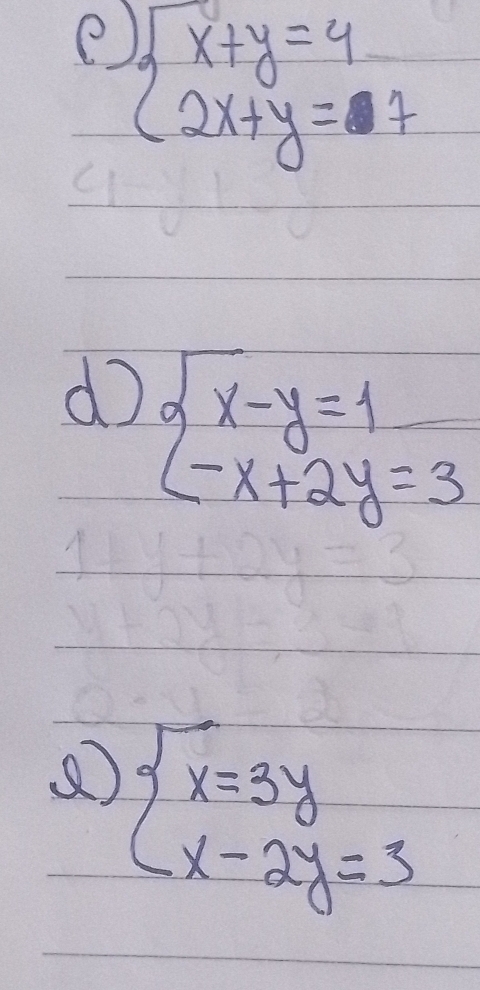 c) { x+y=4
2x+y=7
d) { x-y=1
-x+2y=3
1+y+2y=3
e) { x=3y
x-2y=3